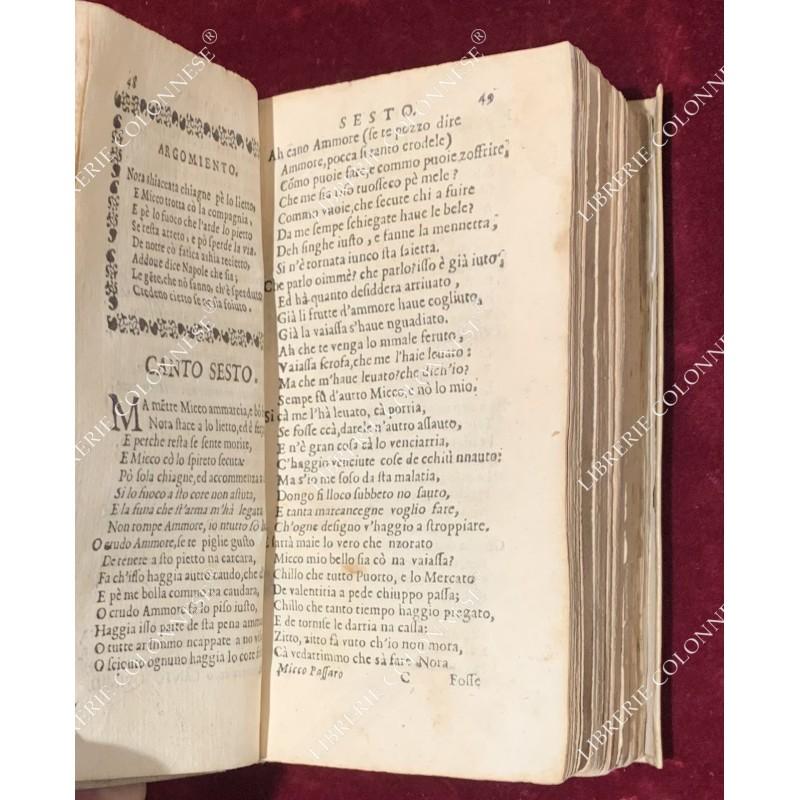 48
ARGOMIENTO.
Nora schiaccata chiagne pè lo lietto,
E Micco trotta cò la compagnia,
E pè lo fuoco che l'arde lo pietto
Se resta arreto, e pò sperde la via.
De notte cò fatica ashia recietto,
Addoue dice Napole che sia;
Le gēte, che nō sanno, ch'è sperduto
Credeno cierto se ne sia foiuto.
CANTO SESTO.
MA mētre Micco ammarcia, e bò
Nora stace a lo lietto, ed è
E perche resta se sente morire,
E Micco cò lo spireto secuta:
Pò sola chiagne, ed accommenza
Si lo fuoco a sto core non astuta,
E la funa che st'arma m'hà legata
Non rompe Ammore, io ntutto sò
O crudo Ammore, se te piglie gusto
De tenere a sto pietto na carcara,
Fa ch'isso haggia autro caudo, che
E pè me bolla comm'a na caudara,
O crudo Ammore fa lo piso iusto,
Haggia isso parte de sta pena
O tutte arrimmo ncappate a no
O sciento ognuno haggia lo core
SESTO.
49
Ah cano Ammore (se te pozzo dire
Ammore, pocca si tanto crodele)
Cōmo puoie fare, e commo puoie zoffrire,
Che me sia sto tuosseco pè mele?
Commo vuoie, che secute chi a fuire
Da me sempe schiegate haue le bele?
Deh singhe iusto, e fanne la mennetta,
Si n'è tornata iunco sta saietta.
Che parlo oimmè? che parlo? isso è già iuto,
Ed hà quanto desiddera arriuato,
Già li frutte d'ammore haue cogliuto,
Già la vaiassa s'haue nguadiato.
Ah che te venga lo mmale feruto,
Vaiassa scrofa, che me l'haie leuato:
Ma che m'haue leuato? che dich'io?
Sempe fù d'autro Micco, e nò lo mio.
Si cà me l'hà leuato, cà porria,
Se fosse ccà, darele n'autro assauto,
E n'è gran cosa cà lo venciarria,
C'haggio venciute cose de cchiù nnauto:
Ma s'io me soso da sta malatia,
Dongo si lloco subbeto no sauto,
E tanta marcancegne voglio fare,
Ch'ogne designo v'haggio a stroppiare.
E sarrà maie lo vero che nzorato
Micco mio bello sia cò na vaiassa?
Chillo che tutto Puorto, e lo Mercato
De valentitia a pede chiuppo passa;
Chillo che tanto tiempo haggio pregato,
E de tornise le darria na cassa:
Zitto, zitto fà vuto ch'io non mora,
Cà vedarrimmo che sà fare Nora
Micco Passaro
C
Fosse
LIBRERIE COLONNESE®